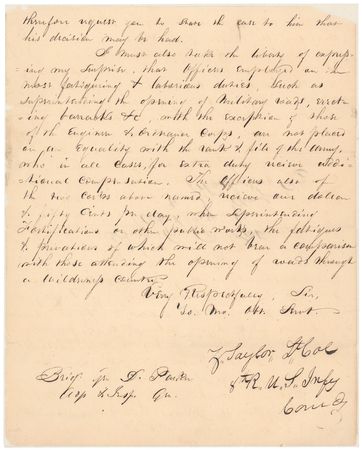 therefore request you to state the case to him that
his decision may be had.
I must also take the liberty of express-
ing my surprise, that Officers employed on the
most fatiguing & laborious duties, such as
superintending the opening of Military roads, erect-
ing barracks &c, with the exception of those
of the Engineer & Ordnance Corps, are not placed
on an equality with the rank & file of the army,
who in all cases for extra duty receive addi-
tional compensation. The Officers also of
the two Corps above named, receive one dollar
& fifty Cents pr day, when superintending
Fortifications or other public works, the fatigues
& privations of which will not bear a comparison
with those attending the opening of roads through
a wilderness country.
Very Respectfully, Sir,
Yo. Mo. Obt. Servt.
Z Taylor Lt Col
8th R. U. S. Infy
Comdg
Brig Gn D. Parker
Adj & Insp. Gn.